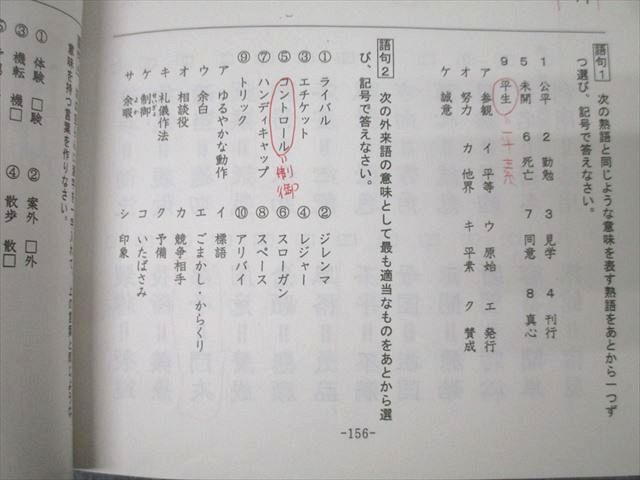 語句1 次の熟語と同じような意味を表す熟語をあとから一つず
つ選び、記号で答えなさい。
1 公平 2 勤勉 3 見学 4 刊行
5 未開 6 死亡 7 同意 8 真心
9 平生 =平素
ア 参観 イ 平等 ウ 原始 エ 発行
オ 努力 カ 他界 キ 平素 ク 賛成
ケ 誠意
語句2 次の外来語の意味として最も適当なものをあとから選
び、記号で答えなさい。
① ライバル ② ジレンマ
③ エチケット ④ レジャー
⑤ コントロール =制御 ⑥ スローガン
⑦ ハンディキャップ ⑧ スペース
⑨ トリック ⑩ アリバイ
ア ゆるやかな動作 イ 標語
ウ 余白 エ ごまかし・からくり
オ 相談役 カ 競争相手
キ 礼儀作法 ク 予備
ケ 制御 コ いたばさみ
サ 余暇 シ 印象
意味を持つ言葉を作りなさい。
① 体験 □験 ② 案外 □外
③ 機転 機□ ④ 散歩 散□
-156-